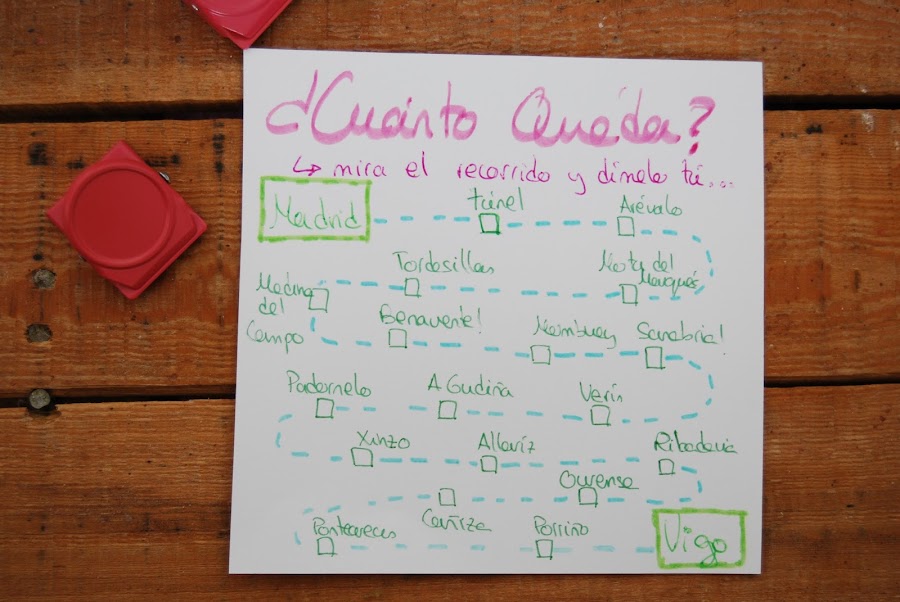 ¿Cuánto Queda?
↳ mira el recorrido y dímelo tú...
Madrid túnel Arévalo
Medina del Campo Tordesillas Mota del Marqués
Benavente! Mombuey Sanabria!
Padornelo A Gudiña Verín
Xinzo Allariz Ribadavia
Cañiza Ourense
Ponteareas Porriño Vigo